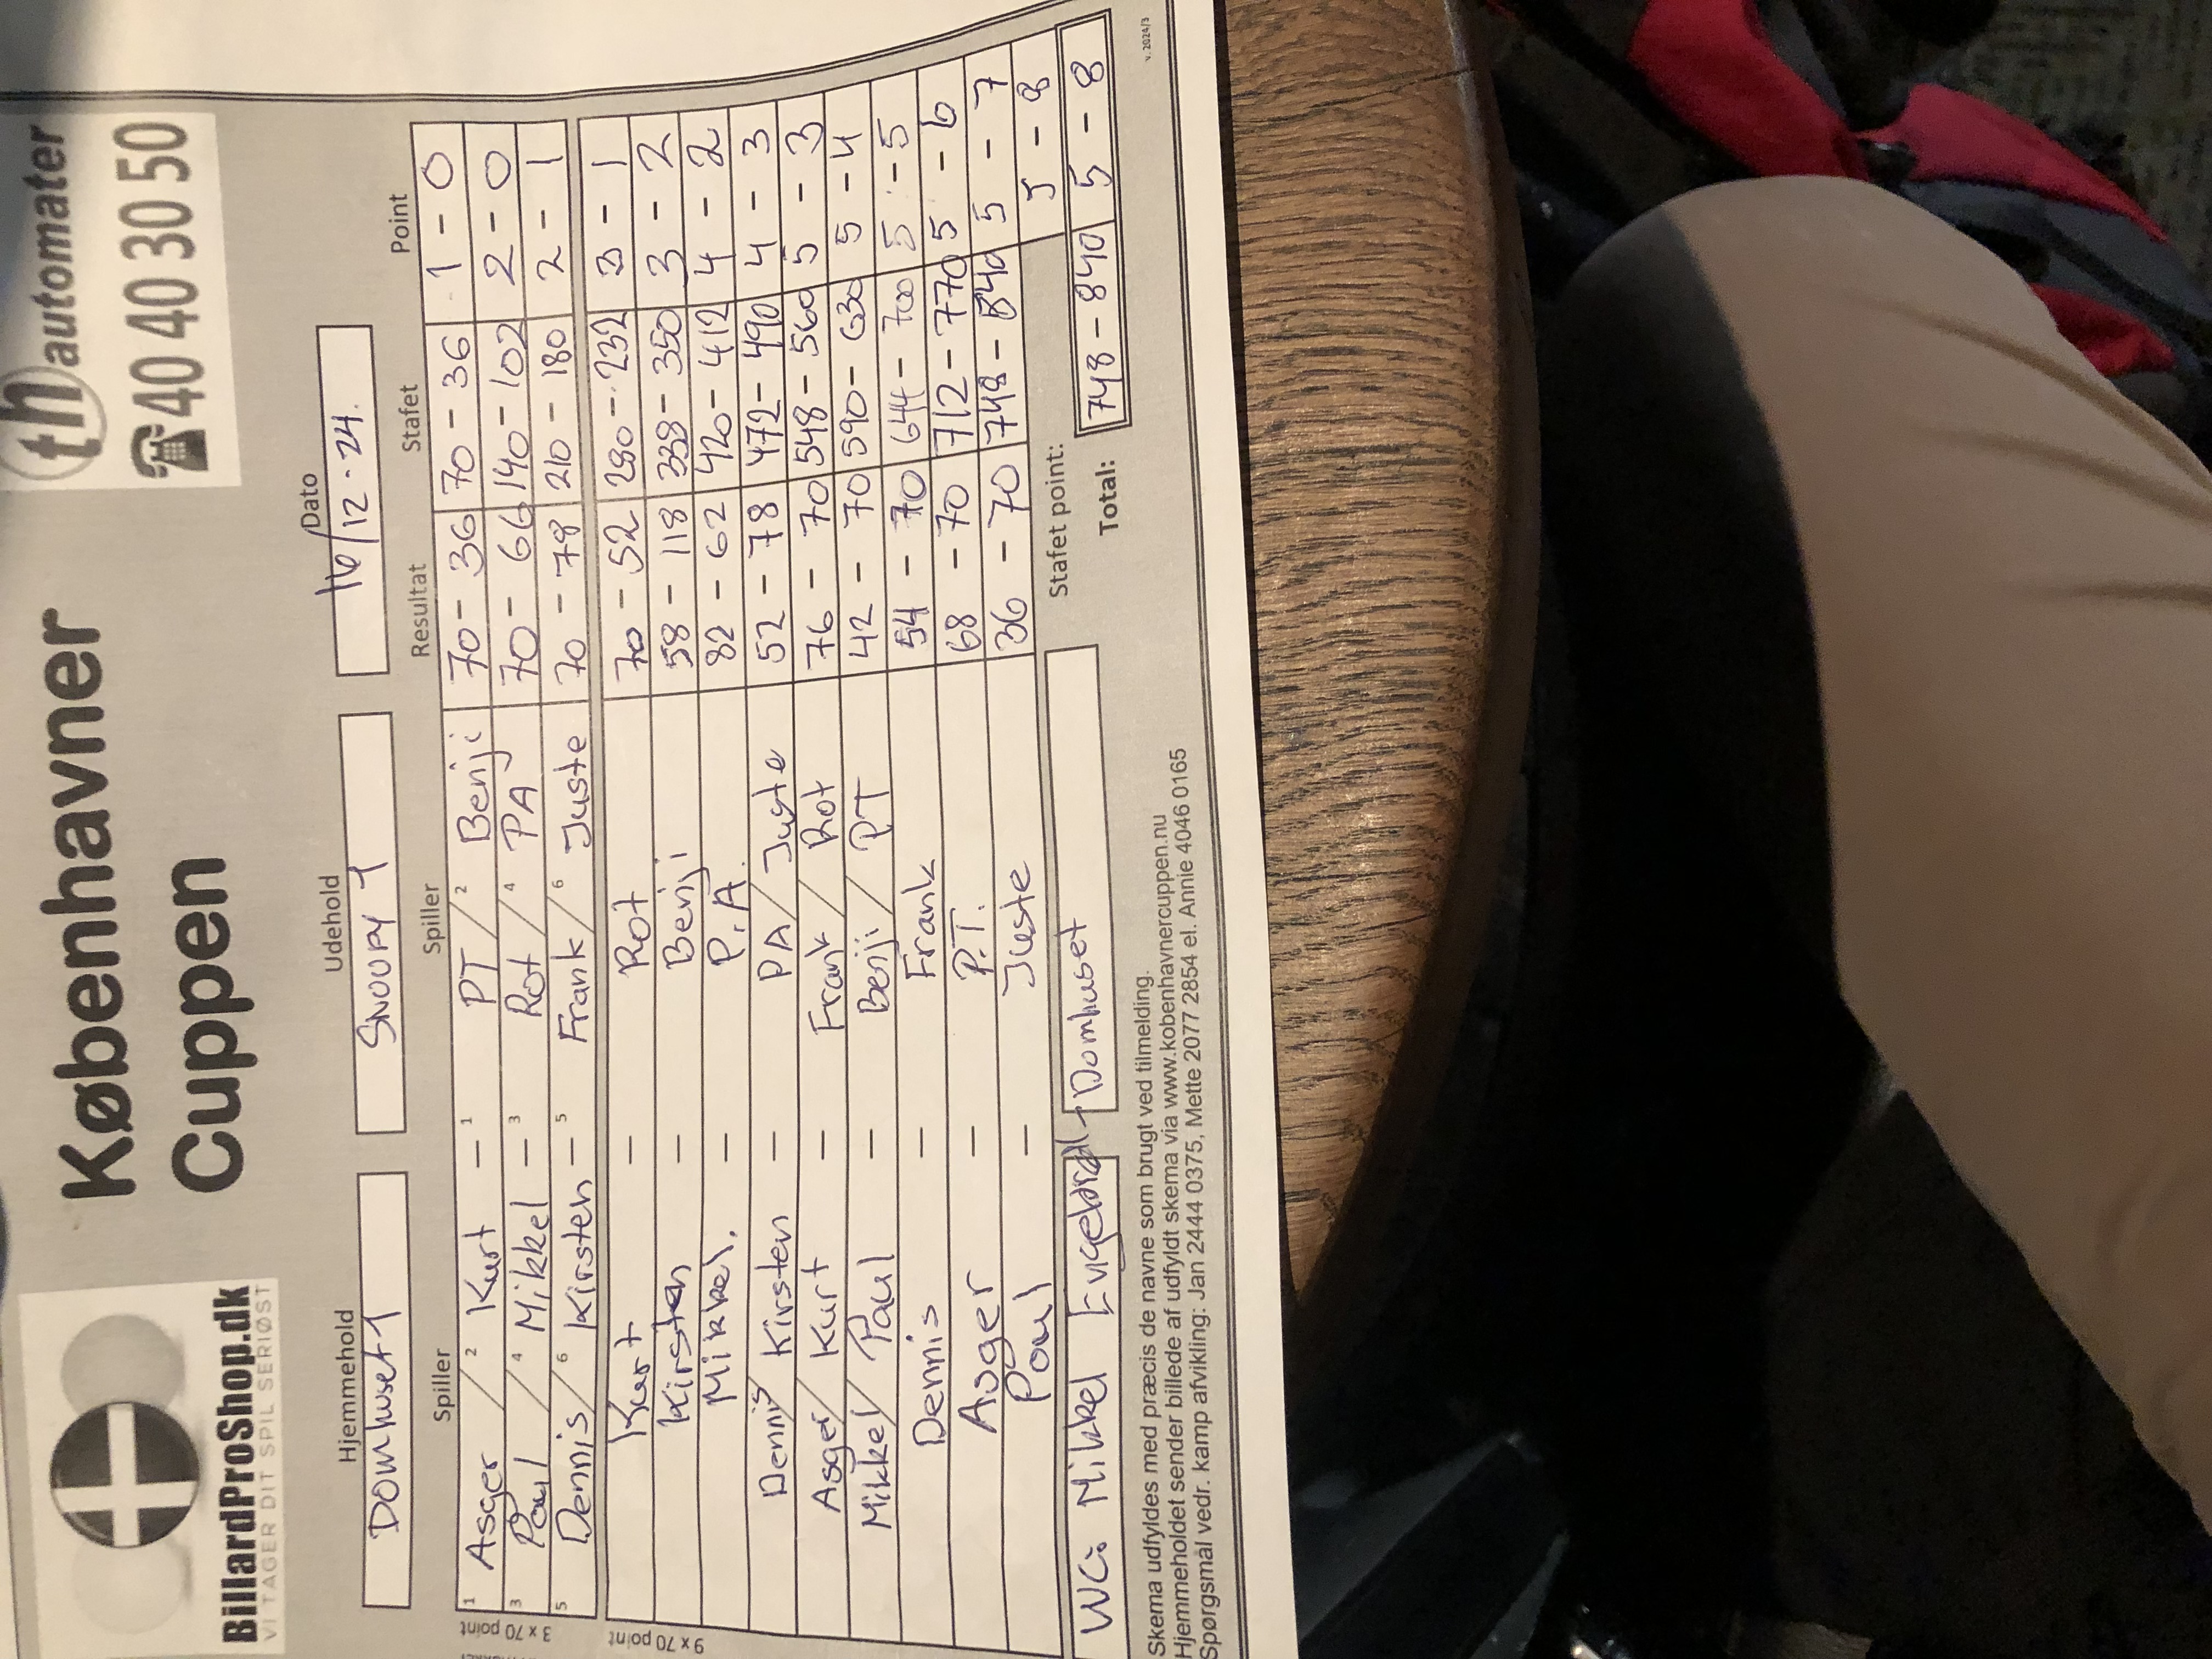 BillardProShop.dk
VI TAGER DIT SPIL SERIØST
Københavner
Cuppen
th automater
40 40 30 50
Hjemmehold Udehold Dato
Domhuset 1 Snoopy 1 16/12-24.
Spiller Spiller Resultat Stafet Point
3 x 70 point
1 Asger / 2 Kurt - 1 PT / 2 Benji 70 - 36 70 - 36 1 - 0
3 Poul / 4 Mikkel - 3 Rot / 4 PA 70 - 66 140 - 102 2 - 0
5 Dennis / 6 Kirsten - 5 Frank / 6 Juste 70 - 78 210 - 180 2 - 1
9 x 70 point
Kurt - Rot 70 - 52 280 - 232 3 - 1
Kirsten - Benji 58 - 118 338 - 350 3 - 2
Mikkel. - P.A. 82 - 62 420 - 412 4 - 2
Dennis / Kirsten - PA / Juste 52 - 78 472 - 490 4 - 3
Asger / Kurt - Frank / Rot 76 - 70 548 - 560 5 - 3
Mikkel / Poul - Benji / PT 42 - 70 590 - 630 5 - 4
Dennis - Frank 54 - 70 644 - 700 5 - 5
Asger - P.T. 68 - 70 712 - 770 5 - 6
Poul - Juste 36 - 70 748 - 840 5 - 7
Stafet point: 5 - 8
WC: Mikkel Domhuset Total: 748 - 840 5 - 8
Skema udfyldes med præcis de navne som brugt ved tilmelding.
Hjemmeholdet sender billede af udfyldt skema via www.kobenhavnercuppen.nu
Spørgsmål vedr. kamp afvikling: Jan 2444 0375, Mette 2077 2854 el. Annie 4046 0165
v. 2024/3